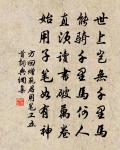 世上豈無千里馬
能騎千里馬何人
直須讀書破萬卷
始用子筆如有神
方回贈范君用筆工五
首詞典網集